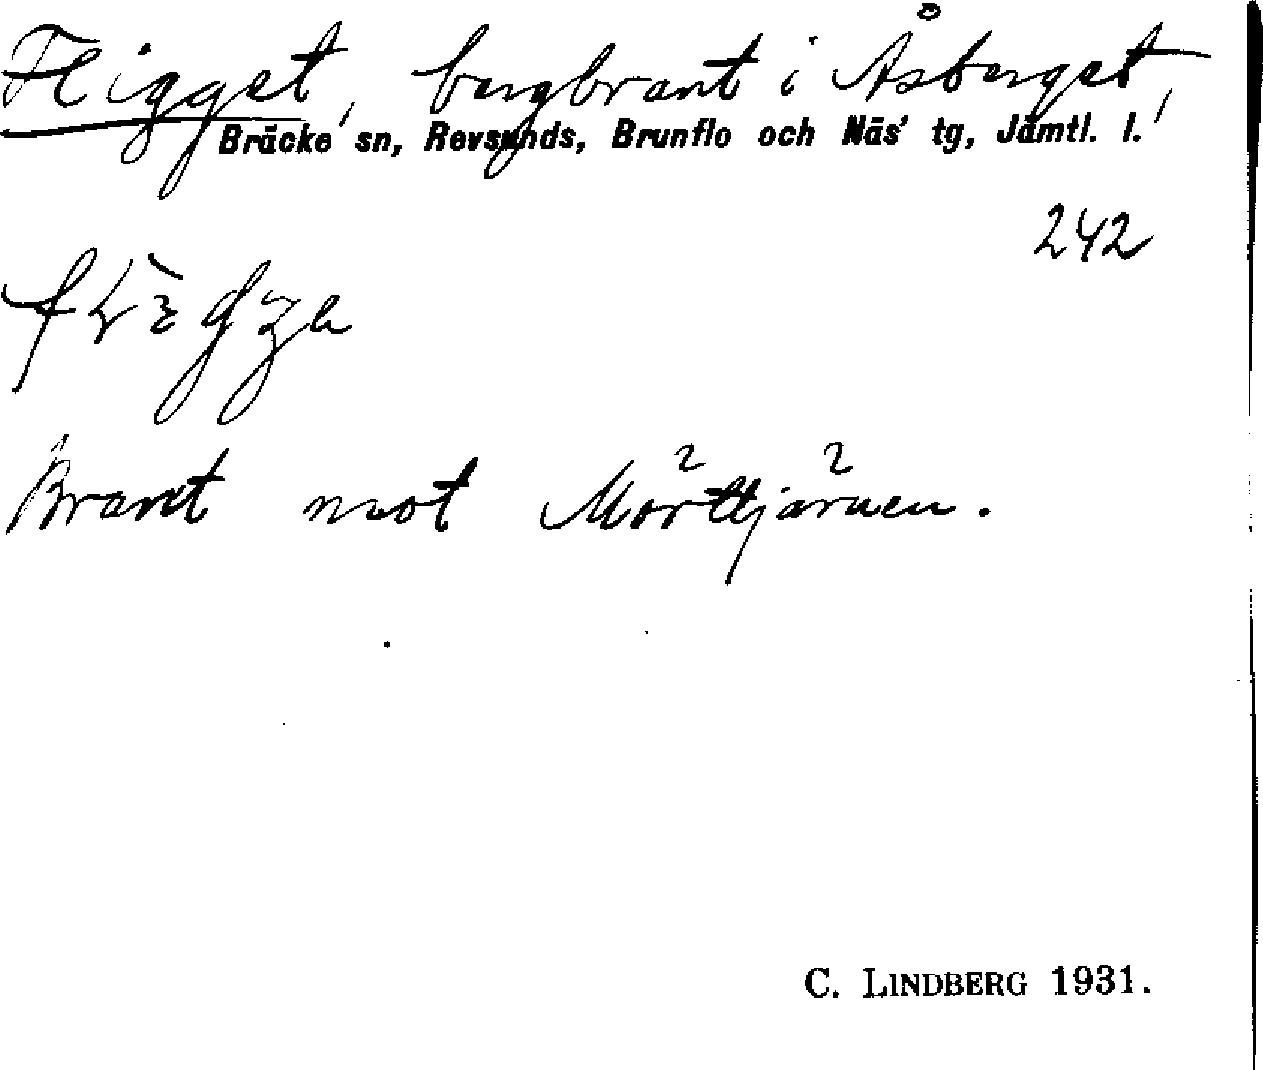 Fligget, bergbrant i Åsberget,
Bräcke sn, Revsunds, Brunflo och Näs' tg, Jämtl. l.
242
Brant mot Mörttjärnen.
C. LINDBERG 1931.